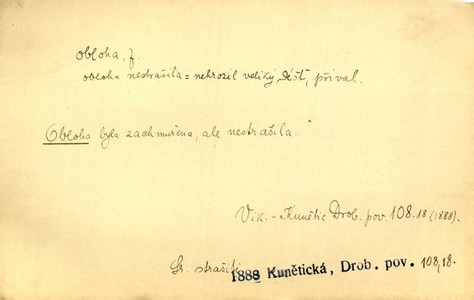 obloha, f.
obloha nestrašila = nehrozil veliký déšť, příval.
Obloha byla zachmuřena, ale nestrašila.
Vik.-Kunětic Drob. pov. 108.18 (1888).
Sr. strašiti
1888 Kunětická, Drob. pov. 108,18.